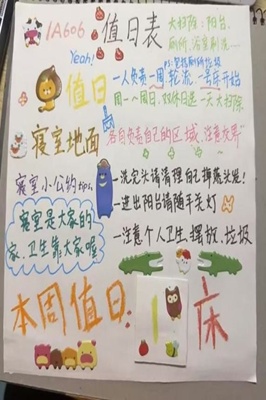 1A606 值日表
大扫除：阳台、
厕所、浴室刷洗…
Yeah!
PS:包括厕所垃圾
值日
一人负责一周轮流，一号床开始
周一~周日，双休日选一天大扫除
寝室地面
各自负责自己的区域，注意发丝
寝室小公约tips,
—洗完头请清理自己掉落头发！
—进出阳台请随手关灯
寝室是大家的
家、卫生靠大家喔
—注意个人卫生摆放、垃圾
本周值日：1床